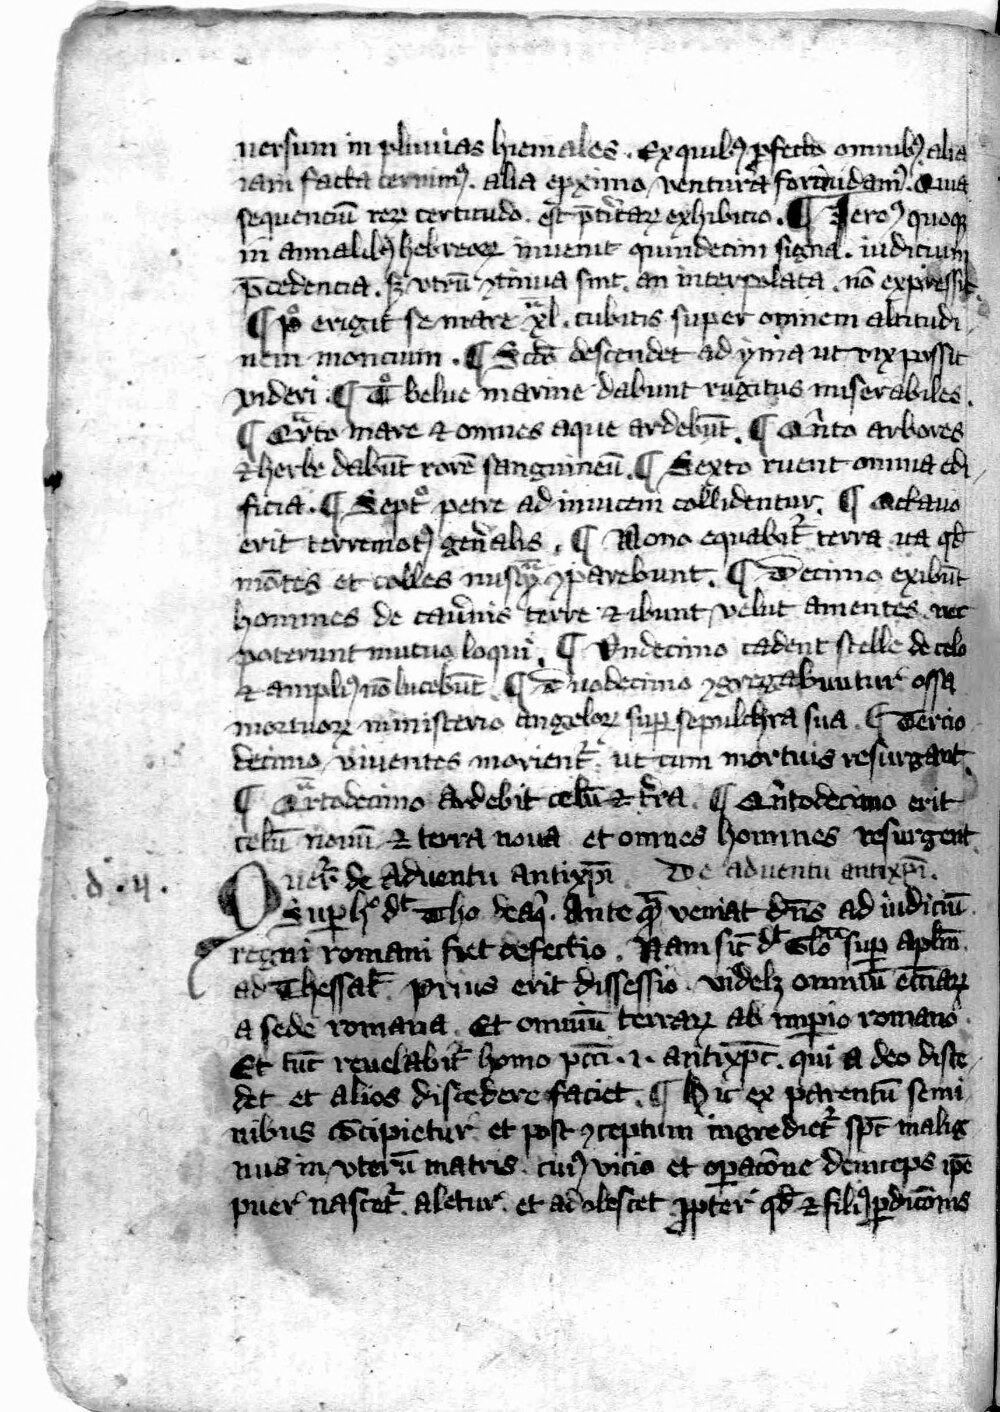 uersum in pluuias hiemales . Ex quibꝰ ꝓfecto omnibꝰ alia
iam facta cernimꝰ . alia e ꝓximo ventura formidamꝰ . Quia
sequenciū rerꝝ certitudo . est p̄teritarꝝ exhibicio . ¶ Jeroꝰ quoqꝫ
in annalibꝰ hebreorꝝ inuenit quindecim signa . iudicium
p̄cedencia . sꝫ vtrū ꝯtinua sint . an interpolata . nō expressit
¶ pº eriget se mare xl . cubitis super omnem altitudi
nem moncium . ¶ Scdō descendet ad yma ut vix possit
videri . ¶ Tº belue marine dabunt rugitus miserabiles .
¶ Qᵃrto mare ⁊ omnes aque ardebūt . ¶ Qⁱnto arbores
⁊ herbe dabūt rorē sanguineū . ¶ Sexto ruent omnia edi
ficia . ¶ Septº petre ad inuicem collidentur . ¶ Octauo
erit terremotꝰ gen̄alis . ¶ Nono equabit᷑ terra ita qd̄
mōtes et colles nusqᵃꝫ ꝯparebunt . ¶ Decimo exibūt
homines de cau̾nis terre ⁊ ibunt velut amentes nec
poterunt mutuo loqui . ¶ Vndecimo cadent stelle de celo
⁊ ampliꝰ nō lucebūt . ¶ Duodecimo ꝯgregabuntur ossa
mortuorꝝ ministerio angelorꝝ suꝑ sepulchra sua . ¶ Tercio
decimo viuentes morient᷑ . ut cum mortuis resurgant
¶ Qᵃrtodecimo ardebit celū ⁊ t̾ra . ¶ Qⁱntodecimo erit
celū nouū ⁊ terra noua et omnes homines resurgent
d . 4 .
Quer᷑ de aduentu antixp̄i De aduentu antixp̄i .
Suꝑ hº dt̄ Tho de aqͥ . Ante qᵃꝫ veniat dn̄s ad iudiciū
regni romani fiet defectio . Nam sic̄ dt̄ Gloᵃ suꝑ aplm̄
ad Thessal̄ . Prius erit dissessio . videlꝫ omniū ecc̄iarꝝ
a sede romana . Et omniū terrarꝝ ab imꝑio romano
Et tūc reuelabit᷑ homo pcc̄i . i . antixpc̄ . qui a deo disce
det et alios discedere faciet . ¶ Hic ex parentū semi
nibus ꝯcipietur et post ꝯceptum ingrediet᷑ spc̄ malig
nus in vterū matris . cuiꝰ vicio et oꝑacōne deinceps ipē
puer nascet᷑ . aletur . et adolescet ꝓpter qd̄ ⁊ filiꝰ ꝑdicōnis